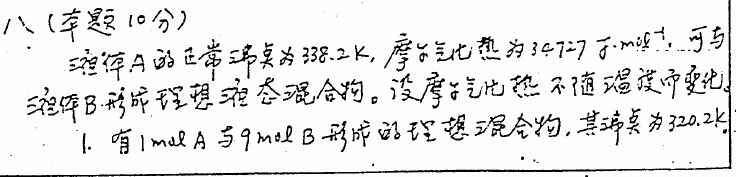 八、(本题10分)
液体A的正常沸点为338.2K,摩尔气化热为34727 J·mol⁻¹,可与
液体B形成理想液态混合物。设摩尔气化热不随温度而变化。
1. 有1mol A与9mol B形成的理想混合物,其沸点为320.2K。